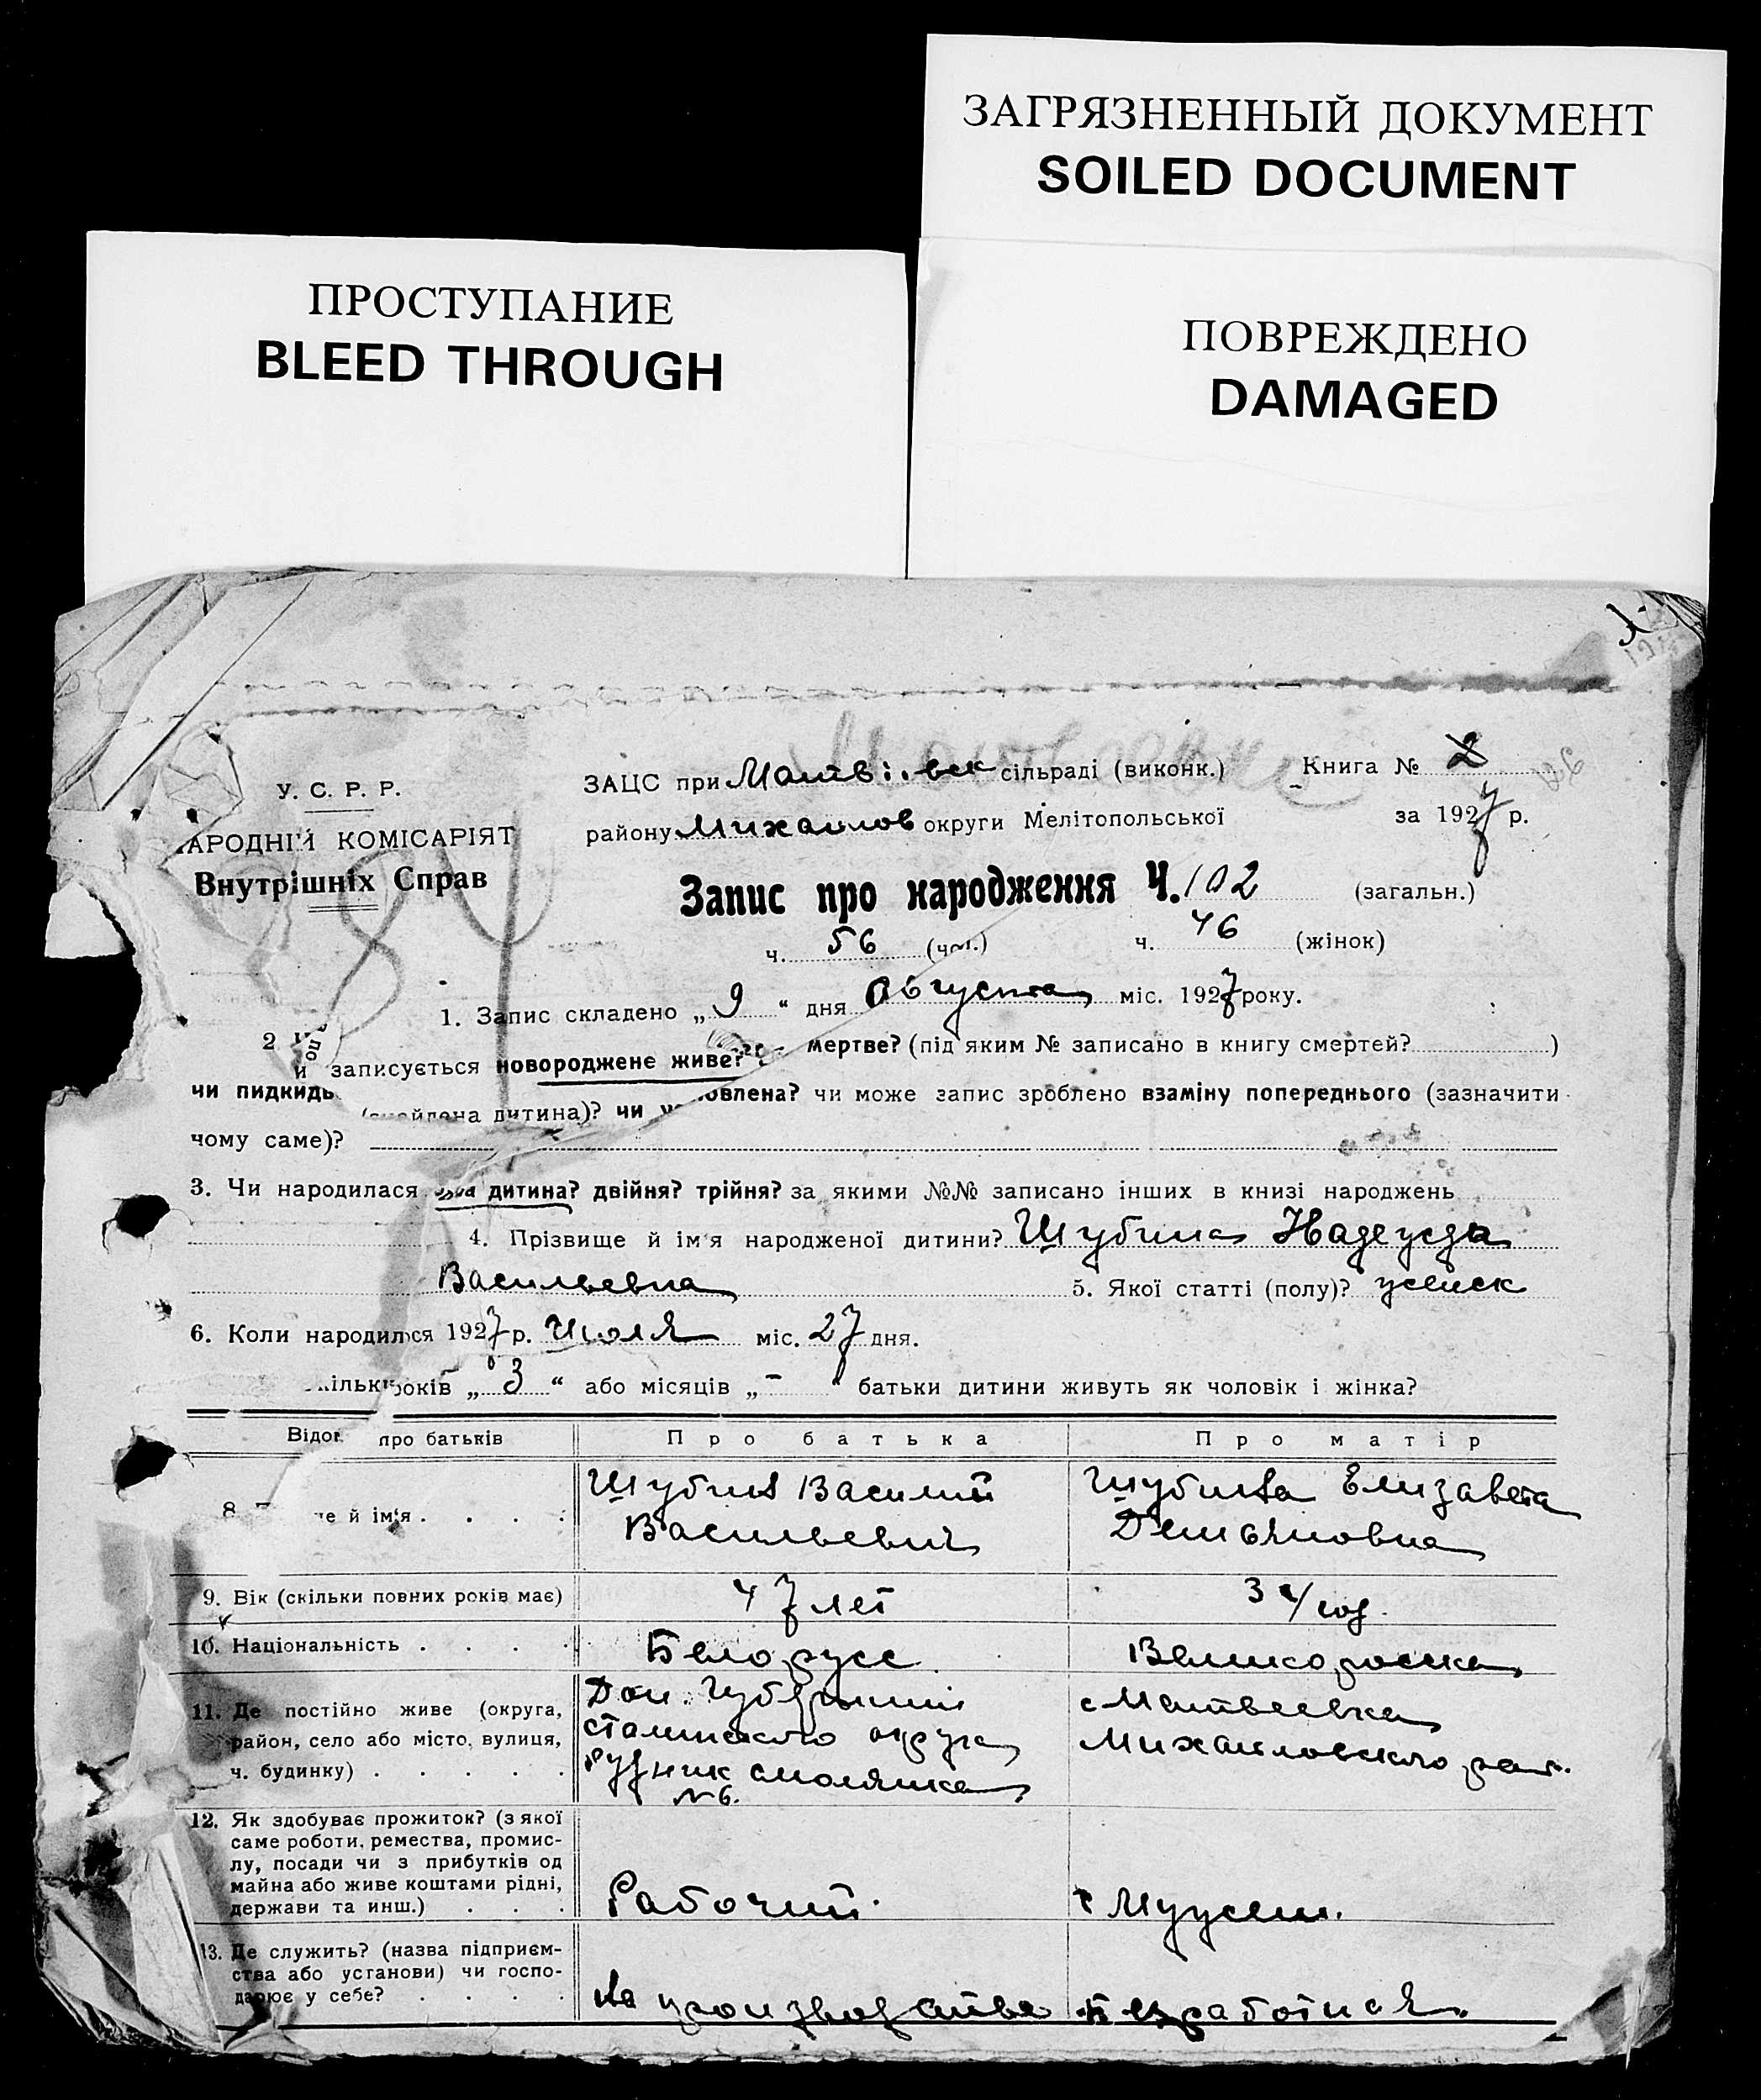 ЗАГРЯЗНЕННЫЙ ДОКУМЕНТ
SOILED DOCUMENT
ПРОСТУПАНИЕ
BLEED THROUGH
ПОВРЕЖДЕНО
DAMAGED
У. С. Р. Р.
АРОДНІЙ КОМІСАРІЯТ
Внутрішніх Справ
84
ЗАЦС при Матвіівск сільраді (виконк.)
Книга № 2
району Михайлов округи Мелітопольської
за 1927 р.
Запис про народження Ч. 102 (загальн.)
ч. 56 (чол.) ч. 46 (жінок)
1. Запис складено „ 9 “ дня Августа міс. 1927 року.
2 записується новороджене живе? мертве? (під яким № записано в книгу смертей? )
чи пидкидь дитина)? чи овлена? чи може запис зроблено взаміну попереднього (зазначити
чому саме)?
3. Чи народилася дитина? двійня? трійня? за якими №№ записано інших в книзі народжень
4. Прізвище й ім'я народженої дитини? Шубина Надежда
Васильевна 5. Якої статті (полу)? женск
6. Коли народилося 1927 р. Июля міс. 27 дня.
ільки років „ 3 “ або місяців „ - “ батьки дитини живуть як чоловік і жінка?
Відом про батьків
Про батька
Про матір
8. е й ім'я . . . .
Шубин Василий
Васильевич
Шубина Елизавета
Демьяновна
9. Вік (скільки повних років має)
47 лет
34 год.
10. Національність . . . .
Белорусс
Великоросска
11. Де постійно живе (округа,
район, село або місто, вулиця,
ч. будинку) . . . . .
Дон. Губернии
сталинского округа
Рудник смолянка
№6.
с Матвеевка
Михайловского рай.
12. Як здобуває прожиток? (з якої
саме роботи, ремества, промис-
лу, посади чи з прибутків од
майна або живе коштами рідні,
держави та инш.) . . .
Рабочий.
с Мужем.
13. Де служить? (назва підприєм-
ства або установи) чи госпо-
дарює у себе? . . . .
На производстве